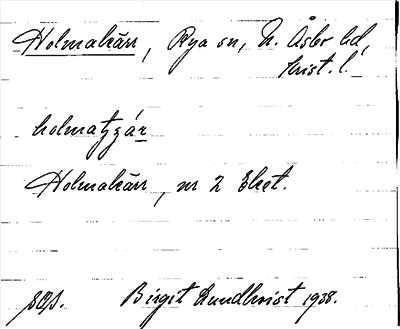 Holmakärr, Rya sn, N. Åsbo hd,
Krist. l.
holmatjá̱r
Holmakärr, nr 2 Eket.
Birgit Lundkvist 1938.